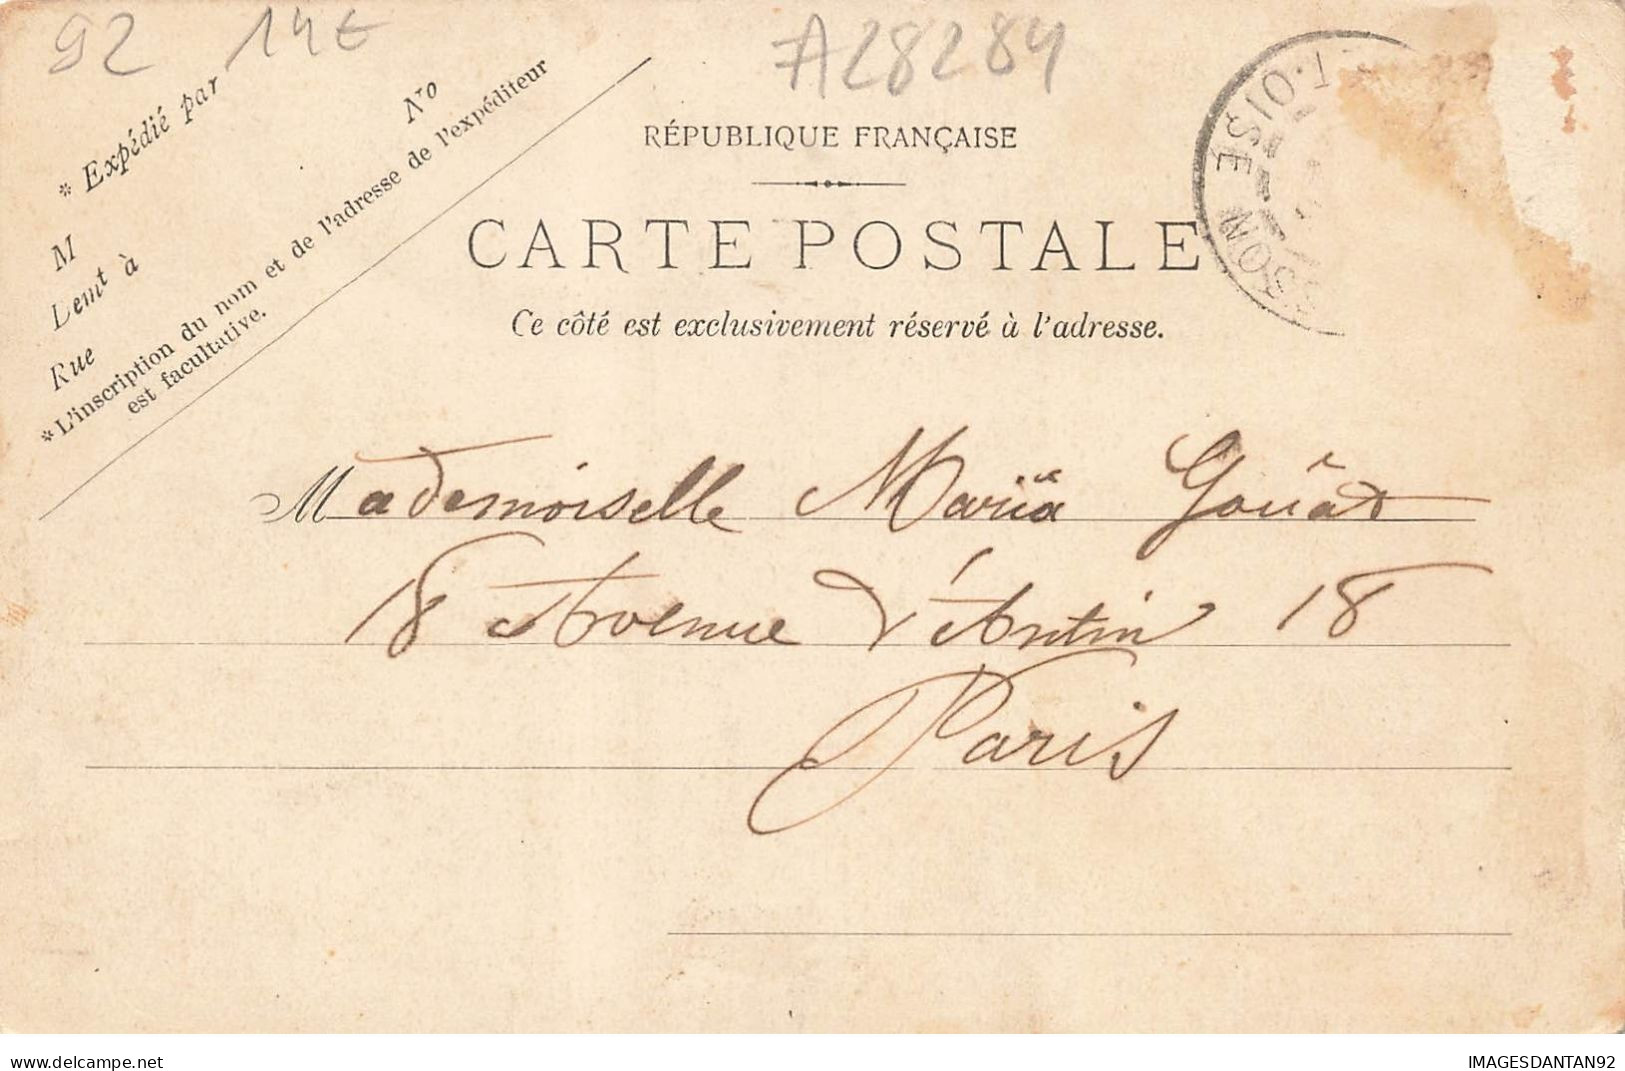 92 14€
A28284
* Expédié par
M
Demt à
Rue
No
*L'inscription du nom et de l'adresse de l'expéditeur
est facultative.
RÉPUBLIQUE FRANÇAISE
CARTE POSTALE
Ce côté est exclusivement réservé à l'adresse.
SSON
T-OISE
Mademoiselle Maria Gouât
18 Avenue d'Antin 18
Paris
delcampe.net
IMAGESDANTAN92